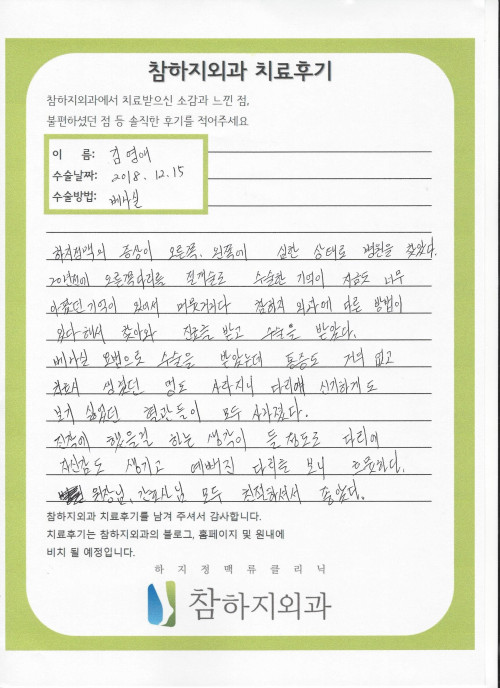 참하지외과 치료후기
참하지외과에서 치료받으신 소감과 느낀 점,
불편하셨던 점 등 솔직한 후기를 적어주세요
이 름: 김영애
수술날짜: 2018. 12. 15
수술방법: 베나실
하지정맥의 증상이 오른쪽, 왼쪽에 심한 상태로 병원을 찾았다.
20년전에 오른쪽다리를 절개술로 수술한 기억이 지금도 너무
아팠던 기억이 있어서 머뭇거리다 참하지 외과에 다른 방법이
있다 해서 찾아와 진료를 받고 수술을 받았다.
베나실 요법으로 수술을 받았는데 통증도 거의 없고
생겼던 멍도 사라지니 다리에 신기하게도
보기 싫었던 혈관들이 모두 사라졌다.
진작에 했을걸 하는 생각이 들 정도로 다리에
자신감도 생기고 예뻐진 다리를 보니 흐뭇하다.
원장님, 간호사님 모두 친절하셔서 좋았다.
참하지외과 치료후기를 남겨 주셔서 감사합니다.
치료후기는 참하지외과의 블로그, 홈페이지 및 원내에
비치 될 예정입니다.
하지정맥류클리닉
참하지외과